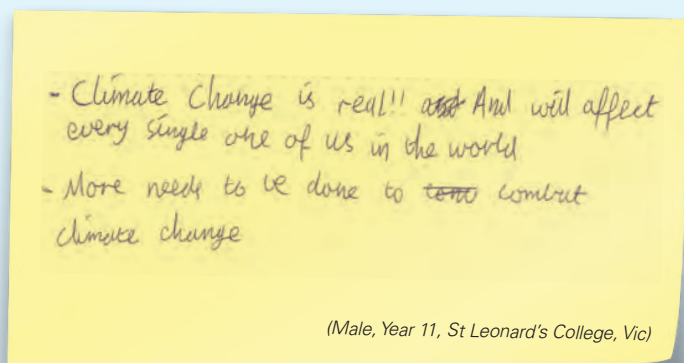 - Climate Change is real!! And will affect
every single one of us in the world
- More needs to be done to combat
climate change
(Male, Year 11, St Leonard's College, Vic)